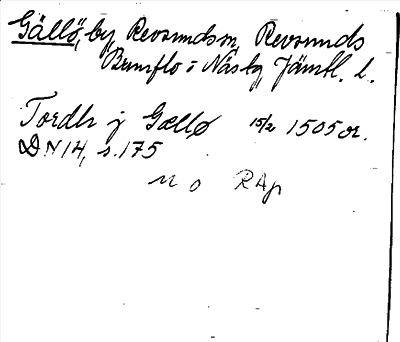 Gällö, by Revsundssn, Revsunds
Brunflo o Näsby, Jämtl. l.
Tordh j Gællø 15/2 1505 or.
DN 14, s. 175
n o RAp